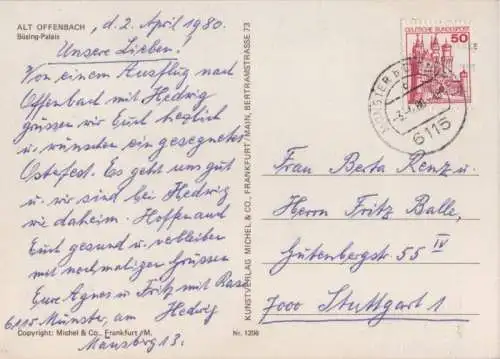 ALT OFFENBACH
Büsing-Palais
, d. 2. April 1980.
Unsere Lieben!
Von einem Ausflug nach
Offenbach mit Hedwig
grüssen wir Euch herzlich
u. wünschen ein gesegnetes
Osterfest. Es geht uns gut
u. wir sind bei Hedwig
wie daheim. Hoffen auch
Euch gesund u. verbleiben
mit nochmaligen Grüssen
Eure Agnes u. Fritz mit
6115 Münster, am Hedwig
13.
Copyright: Michel & Co., Frankfurt/M.
Nr. 1256
KUNSTVERLAG MICHEL & CO., FRANKFURT/MAIN, BERTRAMSTRASSE 73
DEUTSCHE BUNDESPOST
50
MÜNSTER b
6115
Frau Berta Renz u.
Herrn Fritz Balle,
Gutenbergstr. 55 IV
7000 Stuttgart 1